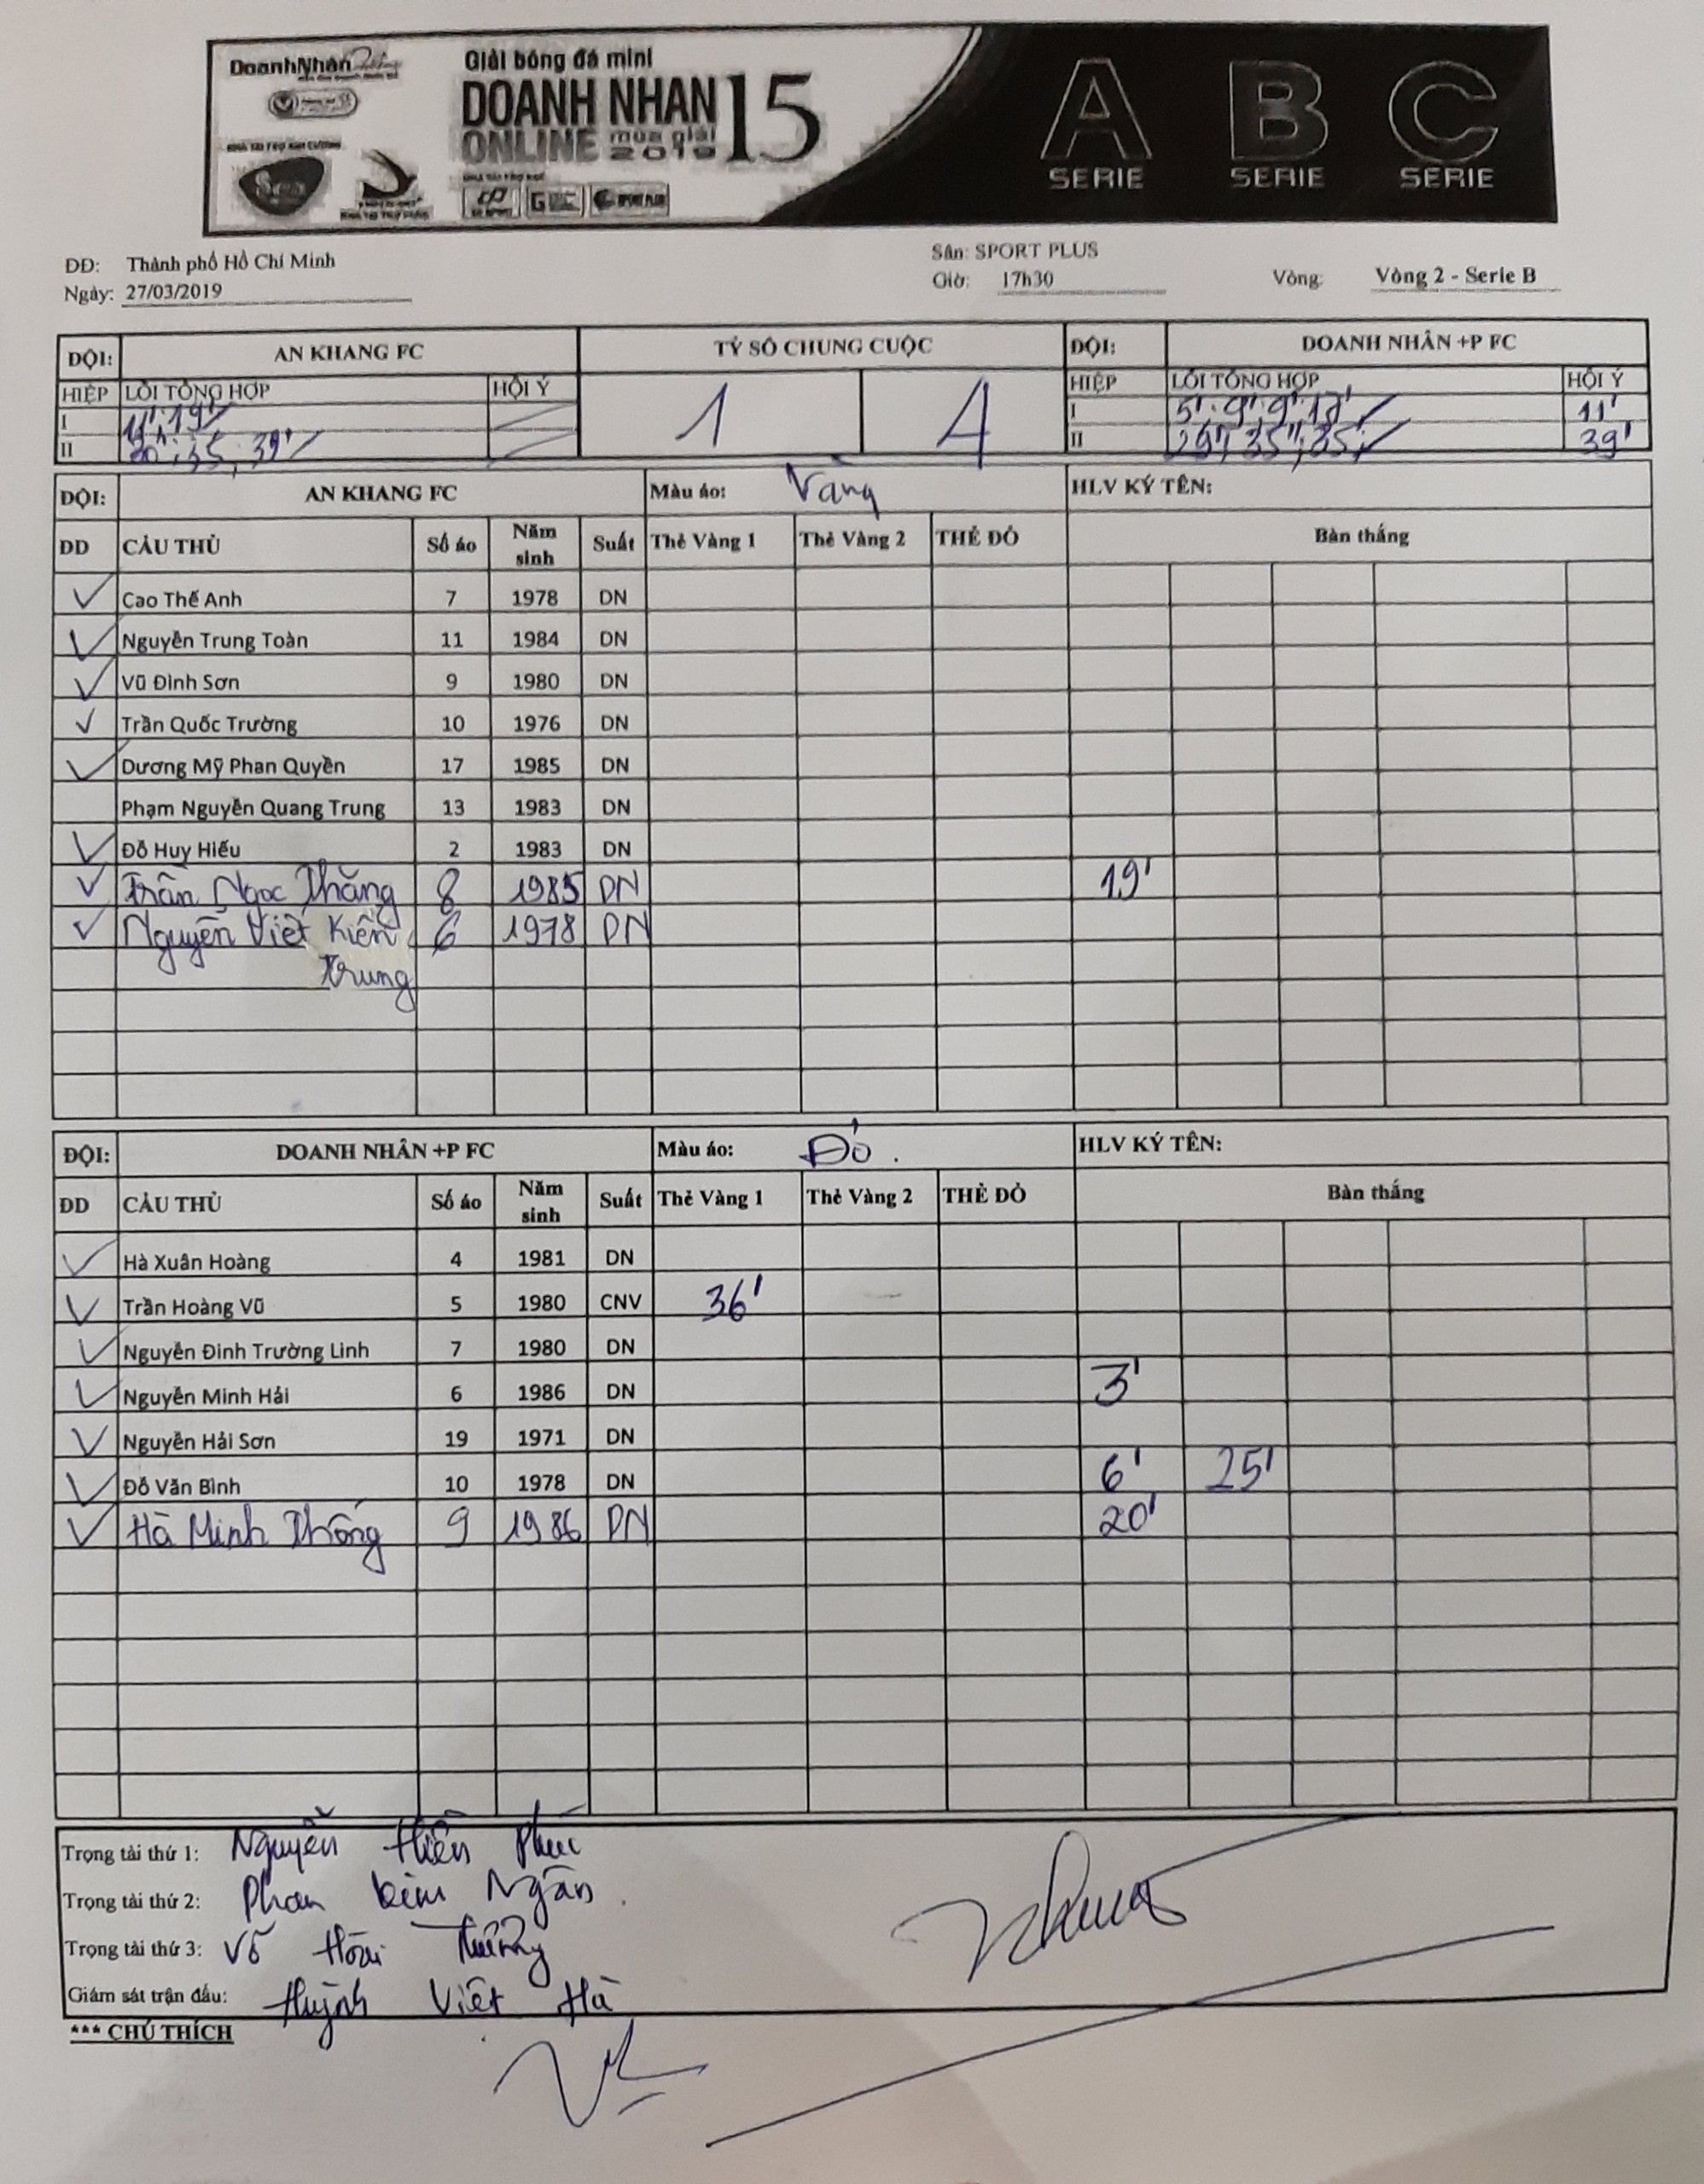 DoanhNhân
Giải bóng đá mini
DOANH NHAN 15
ONLINE mùa giải 2019
NHÀ TÀI TRỢ KIM CƯƠNG
SPORT PLUS
A SERIE B SERIE C SERIE
ĐĐ: Thành phố Hồ Chí Minh Sân: SPORT PLUS
Ngày: 27/03/2019 Giờ: 17h30 Vòng: Vòng 2 - Serie B
ĐỘI: AN KHANG FC TỶ SỐ CHUNG CUỘC ĐỘI: DOANH NHÂN +P FC
HIỆP LỖI TỔNG HỢP HỘI Ý 1 4 HIỆP LỖI TỔNG HỢP HỘI Ý
I 11', 19' I 5', 9', 9', 17' 11'
II 35, 39' II 35", 35' 39'
ĐỘI: AN KHANG FC Màu áo: Vàng HLV KÝ TÊN:
DD CẦU THỦ Số áo Năm sinh Suất Thẻ Vàng 1 Thẻ Vàng 2 THẺ ĐỎ Bàn thắng
Cao Thế Anh 7 1978 DN
Nguyễn Trung Toàn 11 1984 DN
Vũ Đình Sơn 9 1980 DN
Trần Quốc Trường 10 1976 DN
Dương Mỹ Phan Quyền 17 1985 DN
Phạm Nguyễn Quang Trung 13 1983 DN
Đỗ Huy Hiếu 2 1983 DN
Trần Ngọc Thăng 8 1985 DN 19'
Nguyễn Viết Kiến 6 1978 DN
Trung
ĐỘI: DOANH NHÂN +P FC Màu áo: Đỏ. HLV KÝ TÊN:
ĐD CẦU THỦ Số áo Năm sinh Suất Thẻ Vàng 1 Thẻ Vàng 2 THẺ ĐỎ Bàn thắng
Hà Xuân Hoàng 4 1981 DN
Trần Hoàng Vũ 5 1980 CNV 36'
Nguyễn Đình Trường Linh 7 1980 DN
Nguyễn Minh Hải 6 1986 DN 3'
Nguyễn Hải Sơn 19 1971 DN
Đỗ Văn Bình 10 1978 DN 6' 25'
Hà Minh Thống 9 1986 DN 20'
Trọng tài thứ 1: Nguyễn Hiền Phúc
Trọng tài thứ 2: Phan Kim Ngân.
Trọng tài thứ 3: Võ Hoài Thương
Giám sát trận đấu: Huỳnh Viết Hà
*** CHÚ THÍCH